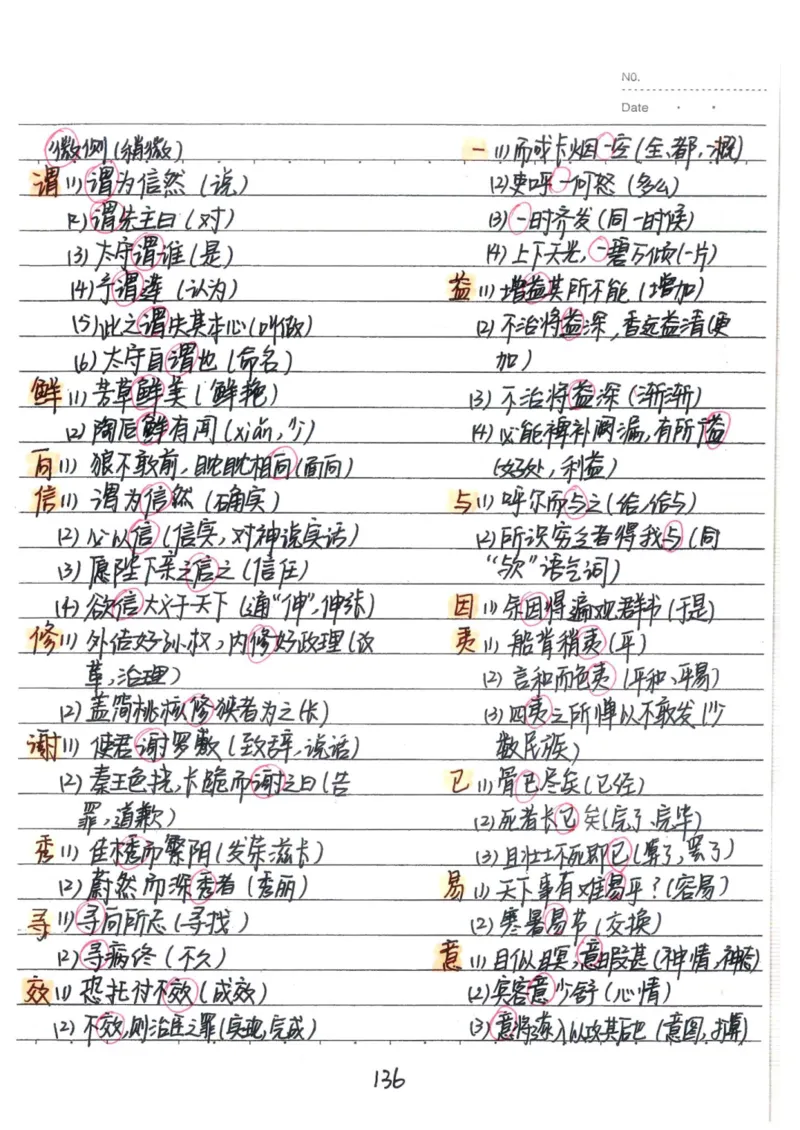 NO.
Date
微侧(稍微)
谓(1)谓为信然(说)
(2)谓先主曰(对)
(3)太守谓谁(是)
(4)予谓莲(认为)
(5)此之谓失其本心(叫做)
(6)太守自谓也(命名)
鲜(1)芳草鲜美(鲜艳)
(2)陶后鲜有闻(xiǎn,少)
向(1)狼不敢前,眈眈相向(面向)
信(1)谓为信然(确实)
(2)必以信(信实,对神说实话)
(3)愿陛下亲之信之(信任)
(4)欲信大义于天下(通“伸”,伸张)
修(1)外结好孙权,内修好政理(改
革,治理)
(2)盖简桃核修狭者为之(长)
谢(1)使君谢罗敷(致辞,说话)
(2)秦王色挠,长跪而谢之曰(告
罪,道歉)
秀(1)佳木秀而繁阴(发荣滋长)
(2)蔚然而深秀者(秀丽)
寻(1)寻向所志(寻找)
(2)寻病终(不久)
效(1)恐托付不效(成效)
(2)不效,则治臣之罪(实现,完成)
一(1)而或长烟一空(全,都,一概)
(2)吏呼一何怒(多么)
(3)一时齐发(同一时候)
(4)上下天光,一碧万顷(一片)
益(1)增益其所不能(增加)
(2)不治将益深,香远益清(更
加)
(3)不治将益深(渐渐)
(4)必能裨补阙漏,有所广益
(好处,利益)
与(1)呼尔而与之(给,给与)
(2)所识穷乏者得我与(同
“欤”语气词)
因(1)余因得遍观群书(于是)
夷(1)船背稍夷(平)
(2)言和而色夷(平和、平易)
(3)四夷之所惮以不敢发(少
数民族)
已(1)骨已尽矣(已经)
(2)死者长已矣(完了、完毕)
(3)且壮士不死即已(算了,罢了)
易(1)天下事有难易乎?(容易)
(2)寒暑易节(交换)
意(1)目似瞑,意暇甚(神情,神态)
(2)宾客意少舒(心情)
(3)意将隧入以攻其后也(意图,打算)
136